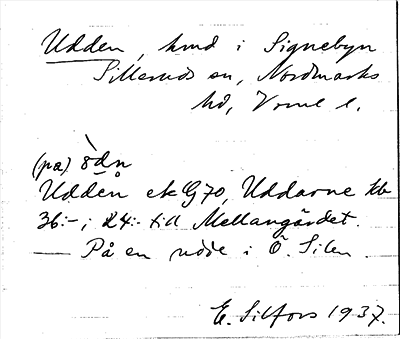 Udden, hmd i Signebyn
Silleruds sn, Nordmarks
hd, Vrml l.
(på) ödn
Udden ek G 70, Uddarne kb
36:-; 24:- till Mellangårdet.
— På en udde i Ö. Silen.
E. Silfors 1937.